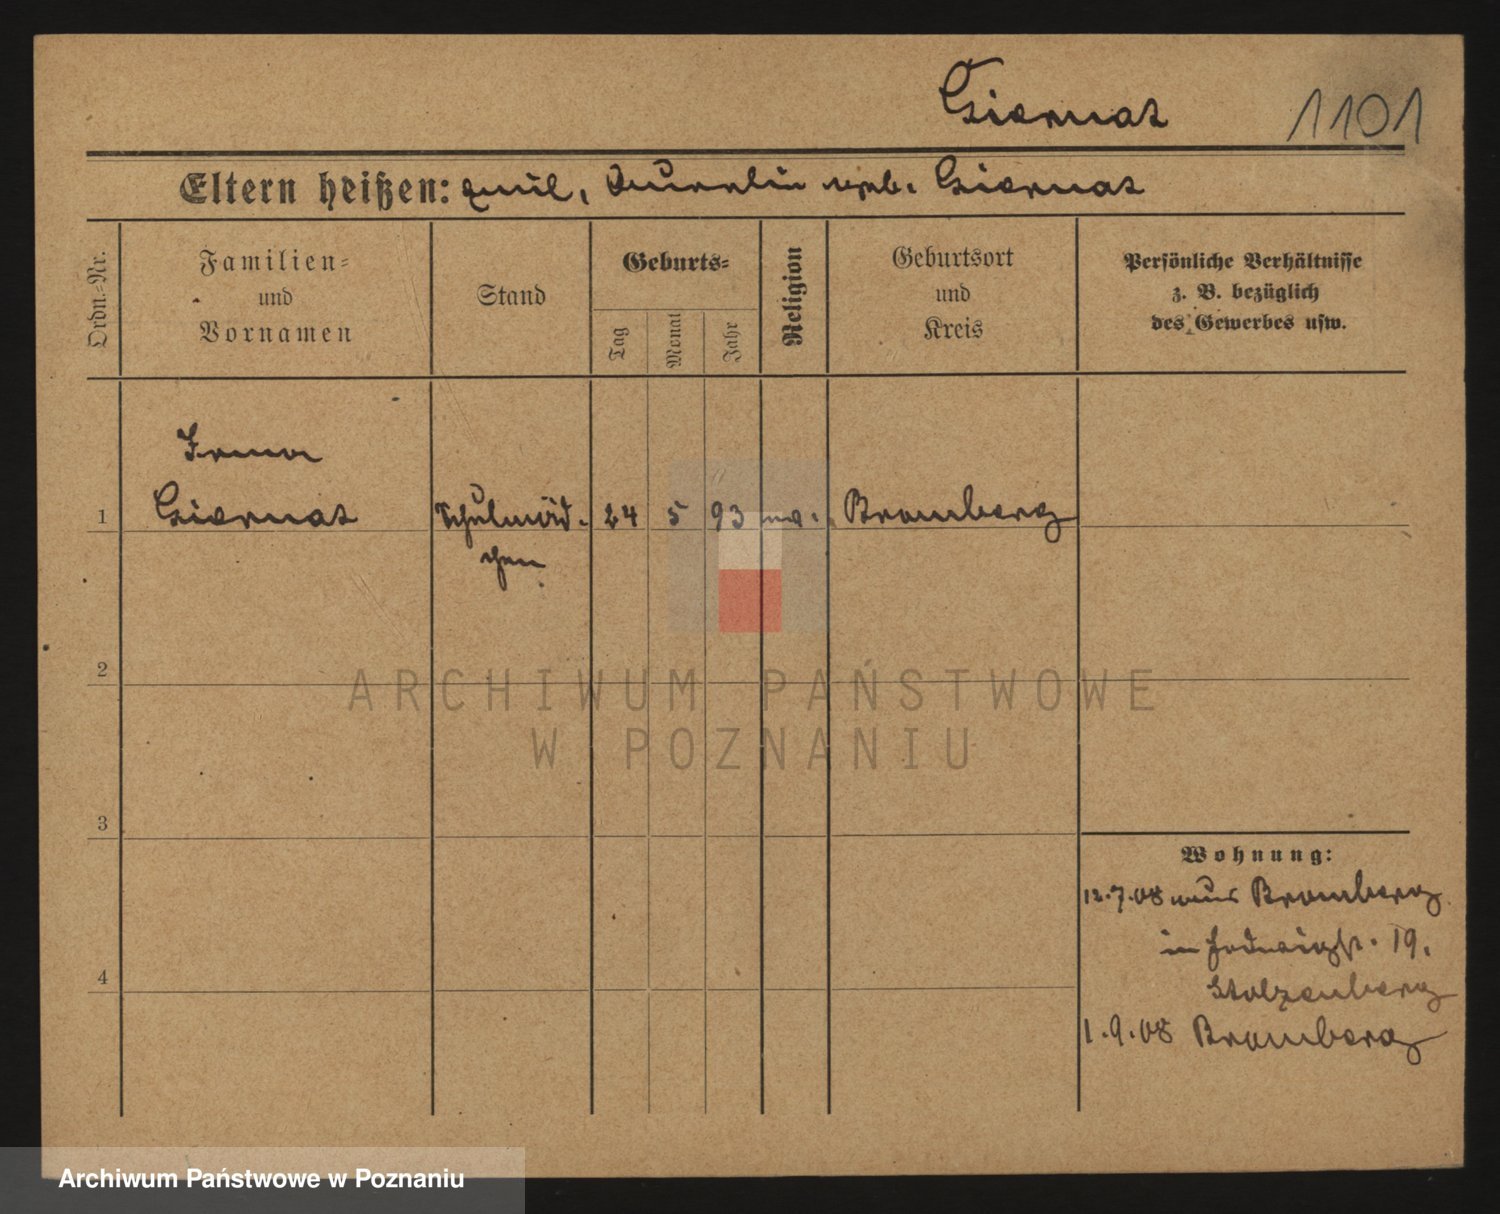 Giernat 1101
Eltern heißen:
geb. Giernat
Ordn.-Nr.
Familien-
und
Vornamen
Stand
Geburts-
Tag
Monat
Jahr
Religion
Geburtsort
und
Kreis
Persönliche Verhältnisse
z. B. bezüglich
des Gewerbes usw.
Irma
1 Giernat Schulmäd- 24 5 93 Bromberg
chen
2
ARCHIWUM PAŃSTWOWE
W POZNANIU
3
4
Wohnung:
12.7.08 aus Bromberg
in 19.
Stolzenberg
1.9.08 Bromberg
Archiwum Państwowe w Poznaniu